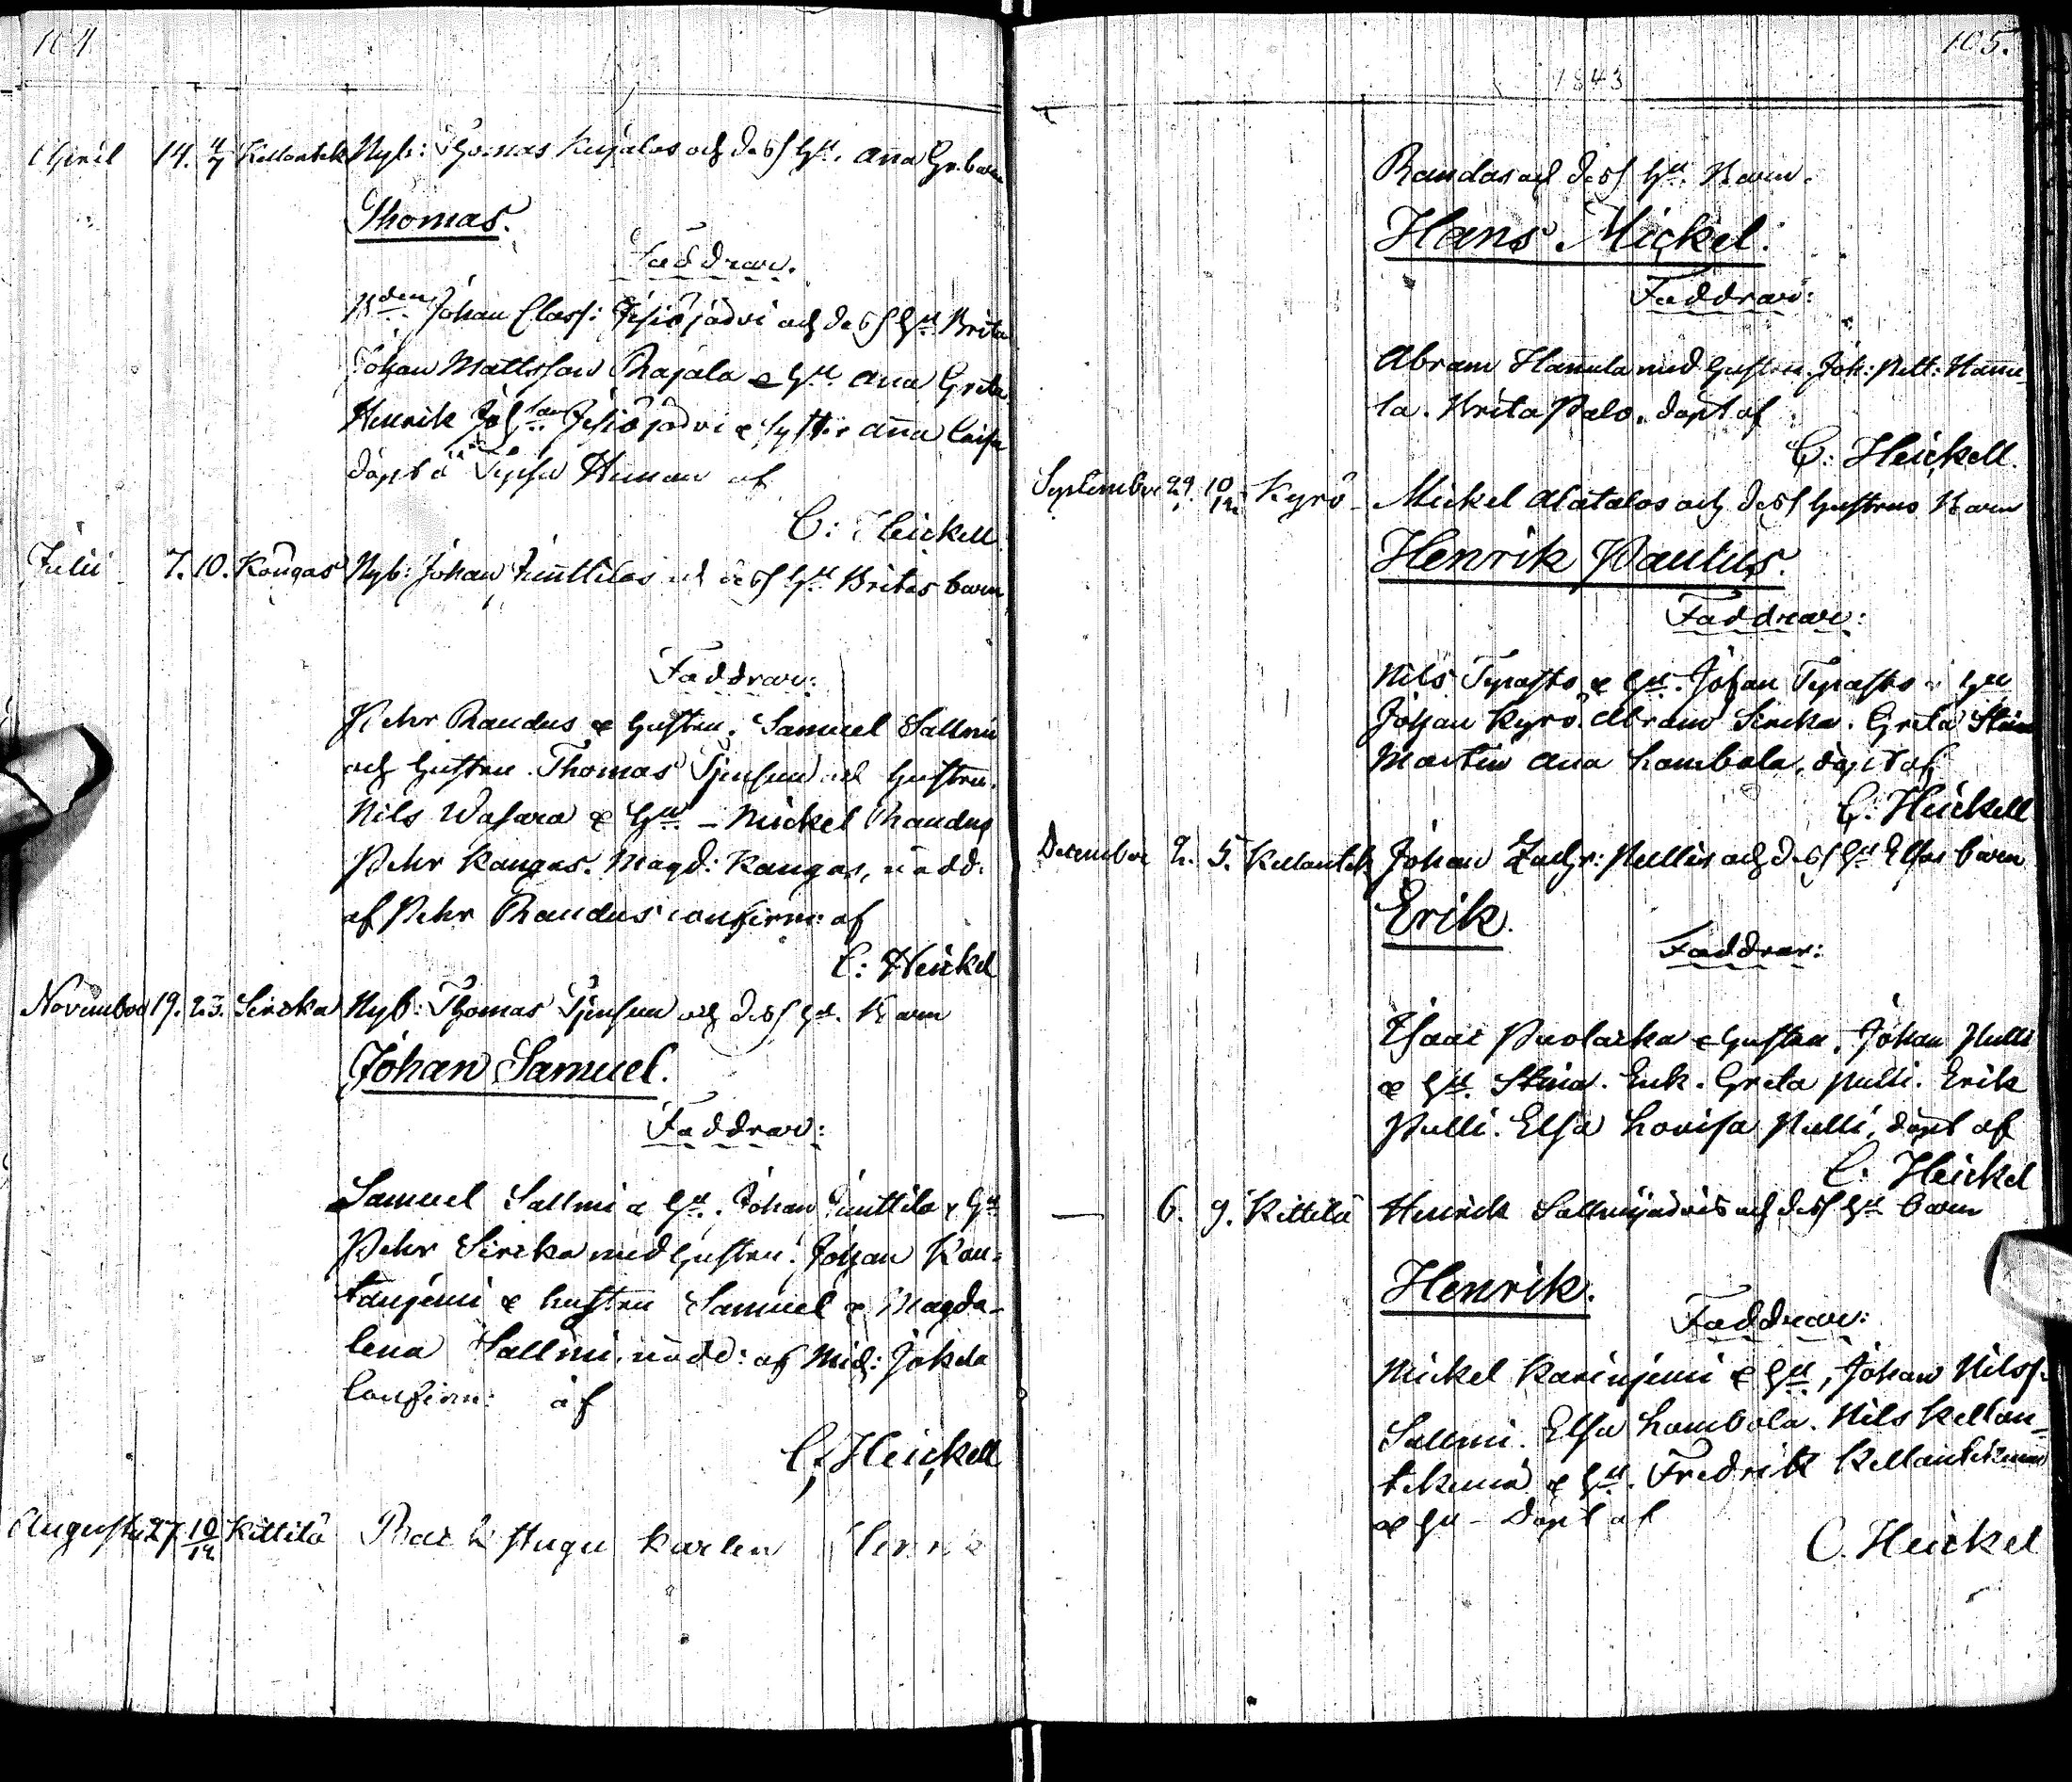 104
April 14. 4/7 Kellontek Nyb: Thomas Kujalas och dess Hu. Aña Gr. barn
Thomas.
Faddrar.
Bden Johan Class: Jesiöjärvi och dess Hu Brita
Johan Mattsson Rajala & Hu Ana Greta
Henrik Joh:son Jesiöjärvi & syster Aña Caisa
döpt af
C: Heickell
Julii 7. 10. Köngas Nyb: Johan Junttilas och dess Hu Britas barn
Faddrar:
Pehr Raudus & hustru. Samuel Sallmi
och hustru. Thomas och hustru.
Nils Wasara & Hu – Mickel Raudus
Pehr Kangas. Magd: Kangas, nödd:
af Pehr Raudus confirm: af
C: Heickel
November 19. 23. Sircka Nyb: Thomas och dess Hu. Barn
Johan Samuel.
Faddrar:
Samuel Sallmi & Hu. Johan Junttila & Hu
Pehr Sircka med hustru. Johan Kan-
& hustru Samuel & Magda-
lena Sallmi, nödd: af Mich: Jokela
Confirm: af
C: Heickell
Augusti 27. 10/12 Kittilä Backstugu karlen
105.
1843
Raudas och dess Hu Barn.
Hans Mickel.
Faddrar:
Abram Hañula med hustru. Joh: Pett: Hañu-
la. Brita Palo. döpt af
C: Heickell.
September 29. 10/12 Kyrö Mickel Alatalos och dess hustrus Barn
Henrik Paulus.
Faddrar:
Nils Typasto & Hu. Johan Typasto & Hu
Johan Kyrö. Abram Sircka. Greta Stina
Martin Ana Lombola, döpt af
C: Heickell
December 2. 5. Kellontek Johan Zachr: Nullis och dess Hu Elsas barn
Erik.
Faddrar:
Isaac & hustru. Johan Nulli
& Hu Stina. Enk. Greta Nulli. Erik
Nulli. Elsa Lovisa Nulli, döpt af
C: Heickel
— 6. 9. Kittilä Henrik Sallmijärvis och dess Hu barn
Henrik.
Faddrar:
Mickel Kariniemi & Hu, Johan Nilss:
Sallmi. Elsa Lombola. Nils Kellon-
tekemä & Hu. Fredrik Kellontekemä
& Hu – Döpt af
C. Heickel